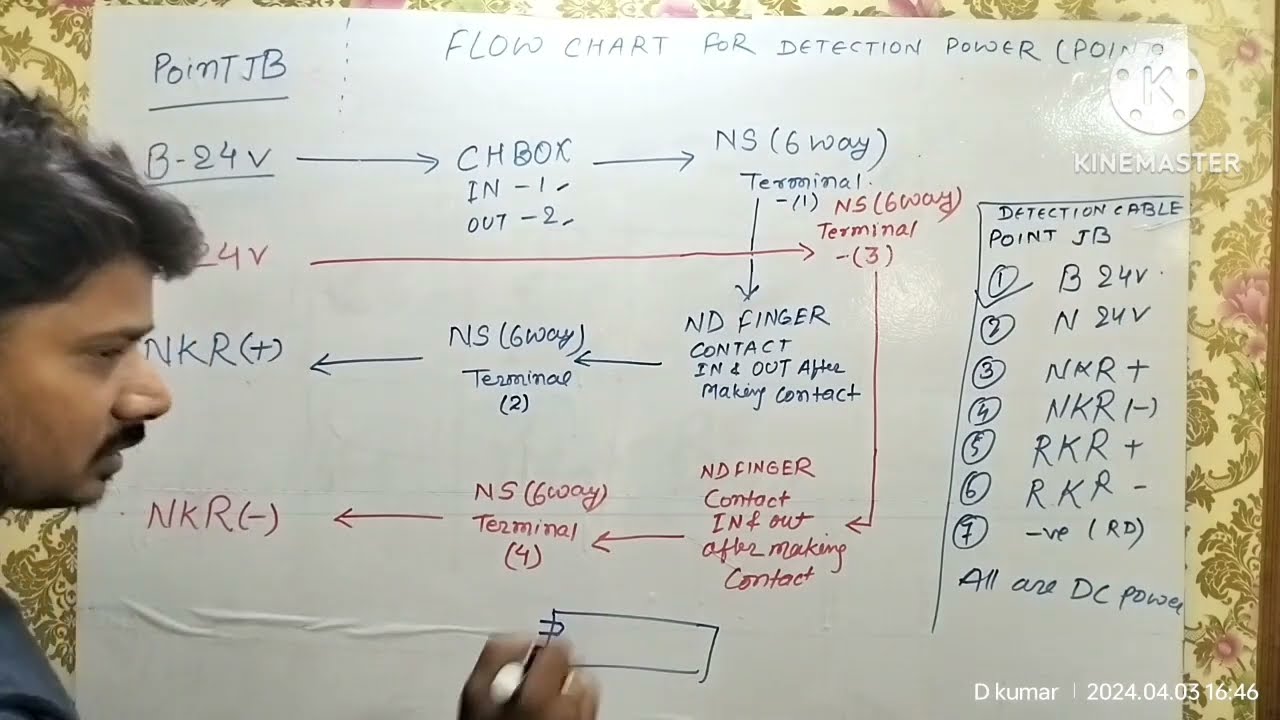 FLOW CHART FOR DETECTION POWER (POINT)
POINT JB
B-24V
CHBOX
IN - 1
OUT - 2
NS (6 way)
Terminal
-(1)
24V
NS (6way)
Terminal
-(3)
ND FINGER
CONTACT
IN & OUT After
Making contact
NS (6way)
Terminal
(2)
NKR(+)
NDFINGER
Contact
IN & out
after making
Contact
NS (6way)
Terminal
(4)
NKR(-)
DETECTION CABLE
POINT JB
① B 24V
② N 24V
③ NKR +
④ NKR(-)
⑤ RKR +
⑥ RKR -
⑦ -ve (RD)
All are DC power
K
KINEMASTER
D kumar | 2024.04.03 16:46